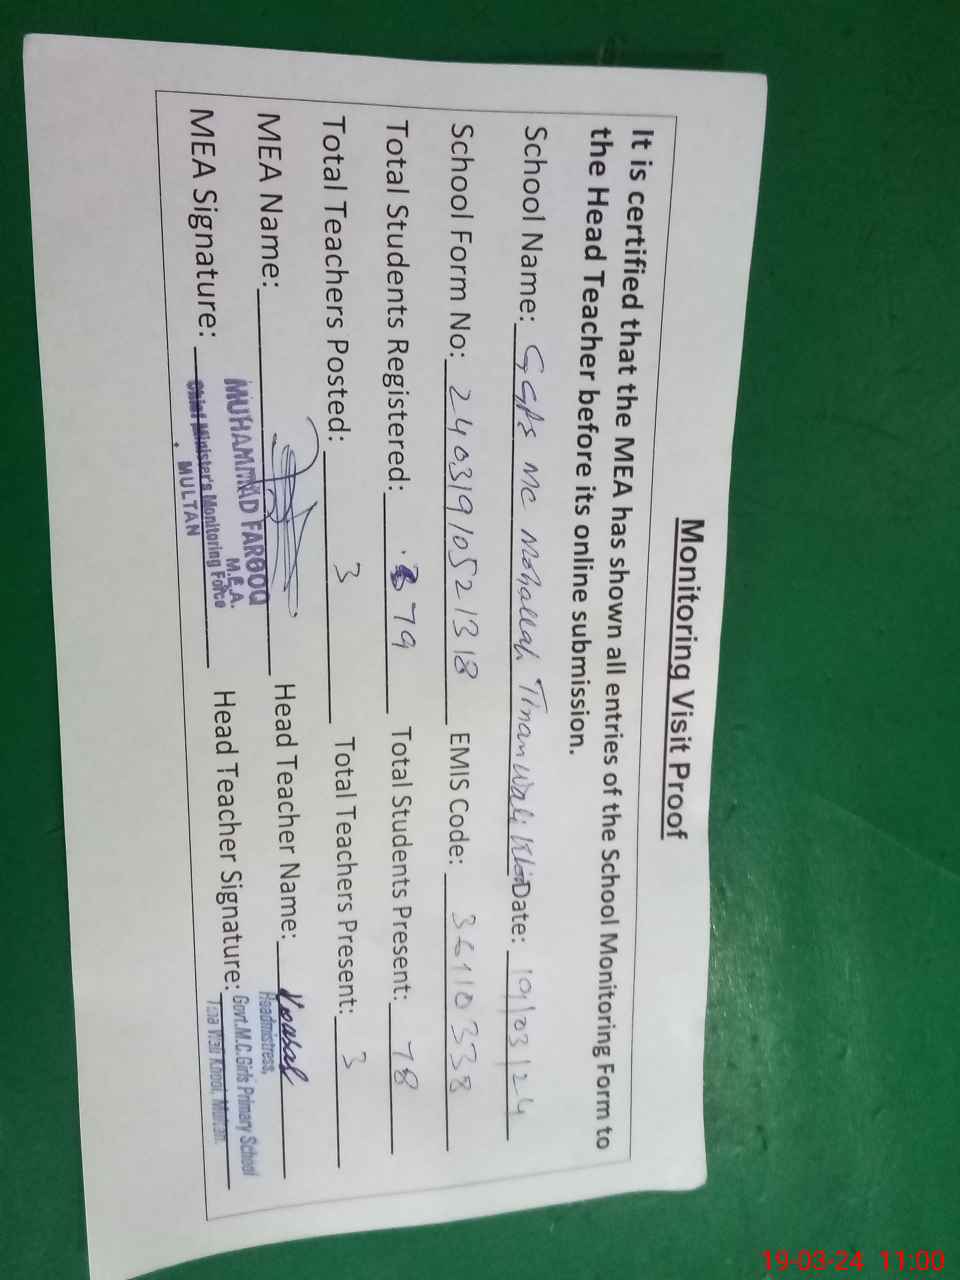 Monitoring Visit Proof
It is certified that the MEA has shown all entries of the School Monitoring Form to
the Head Teacher before its online submission.
School Name: GGPS MC Mohallah Tinan Wali Khoi Date: 19/03/24
School Form No: 24031910521318 EMIS Code: 36110338
Total Students Registered: 79 Total Students Present: 78
Total Teachers Posted: 3 Total Teachers Present: 3
MEA Name: Head Teacher Name: Kousar
MUHAMMAD FAROOQ
M.E.A.
Chief Minister's Monitoring Force
MULTAN
MEA Signature: Head Teacher Signature:
Headmistress,
Govt.M.C.Girls Primary School
Wali Khooi, Multan.
19-03-24 11:00